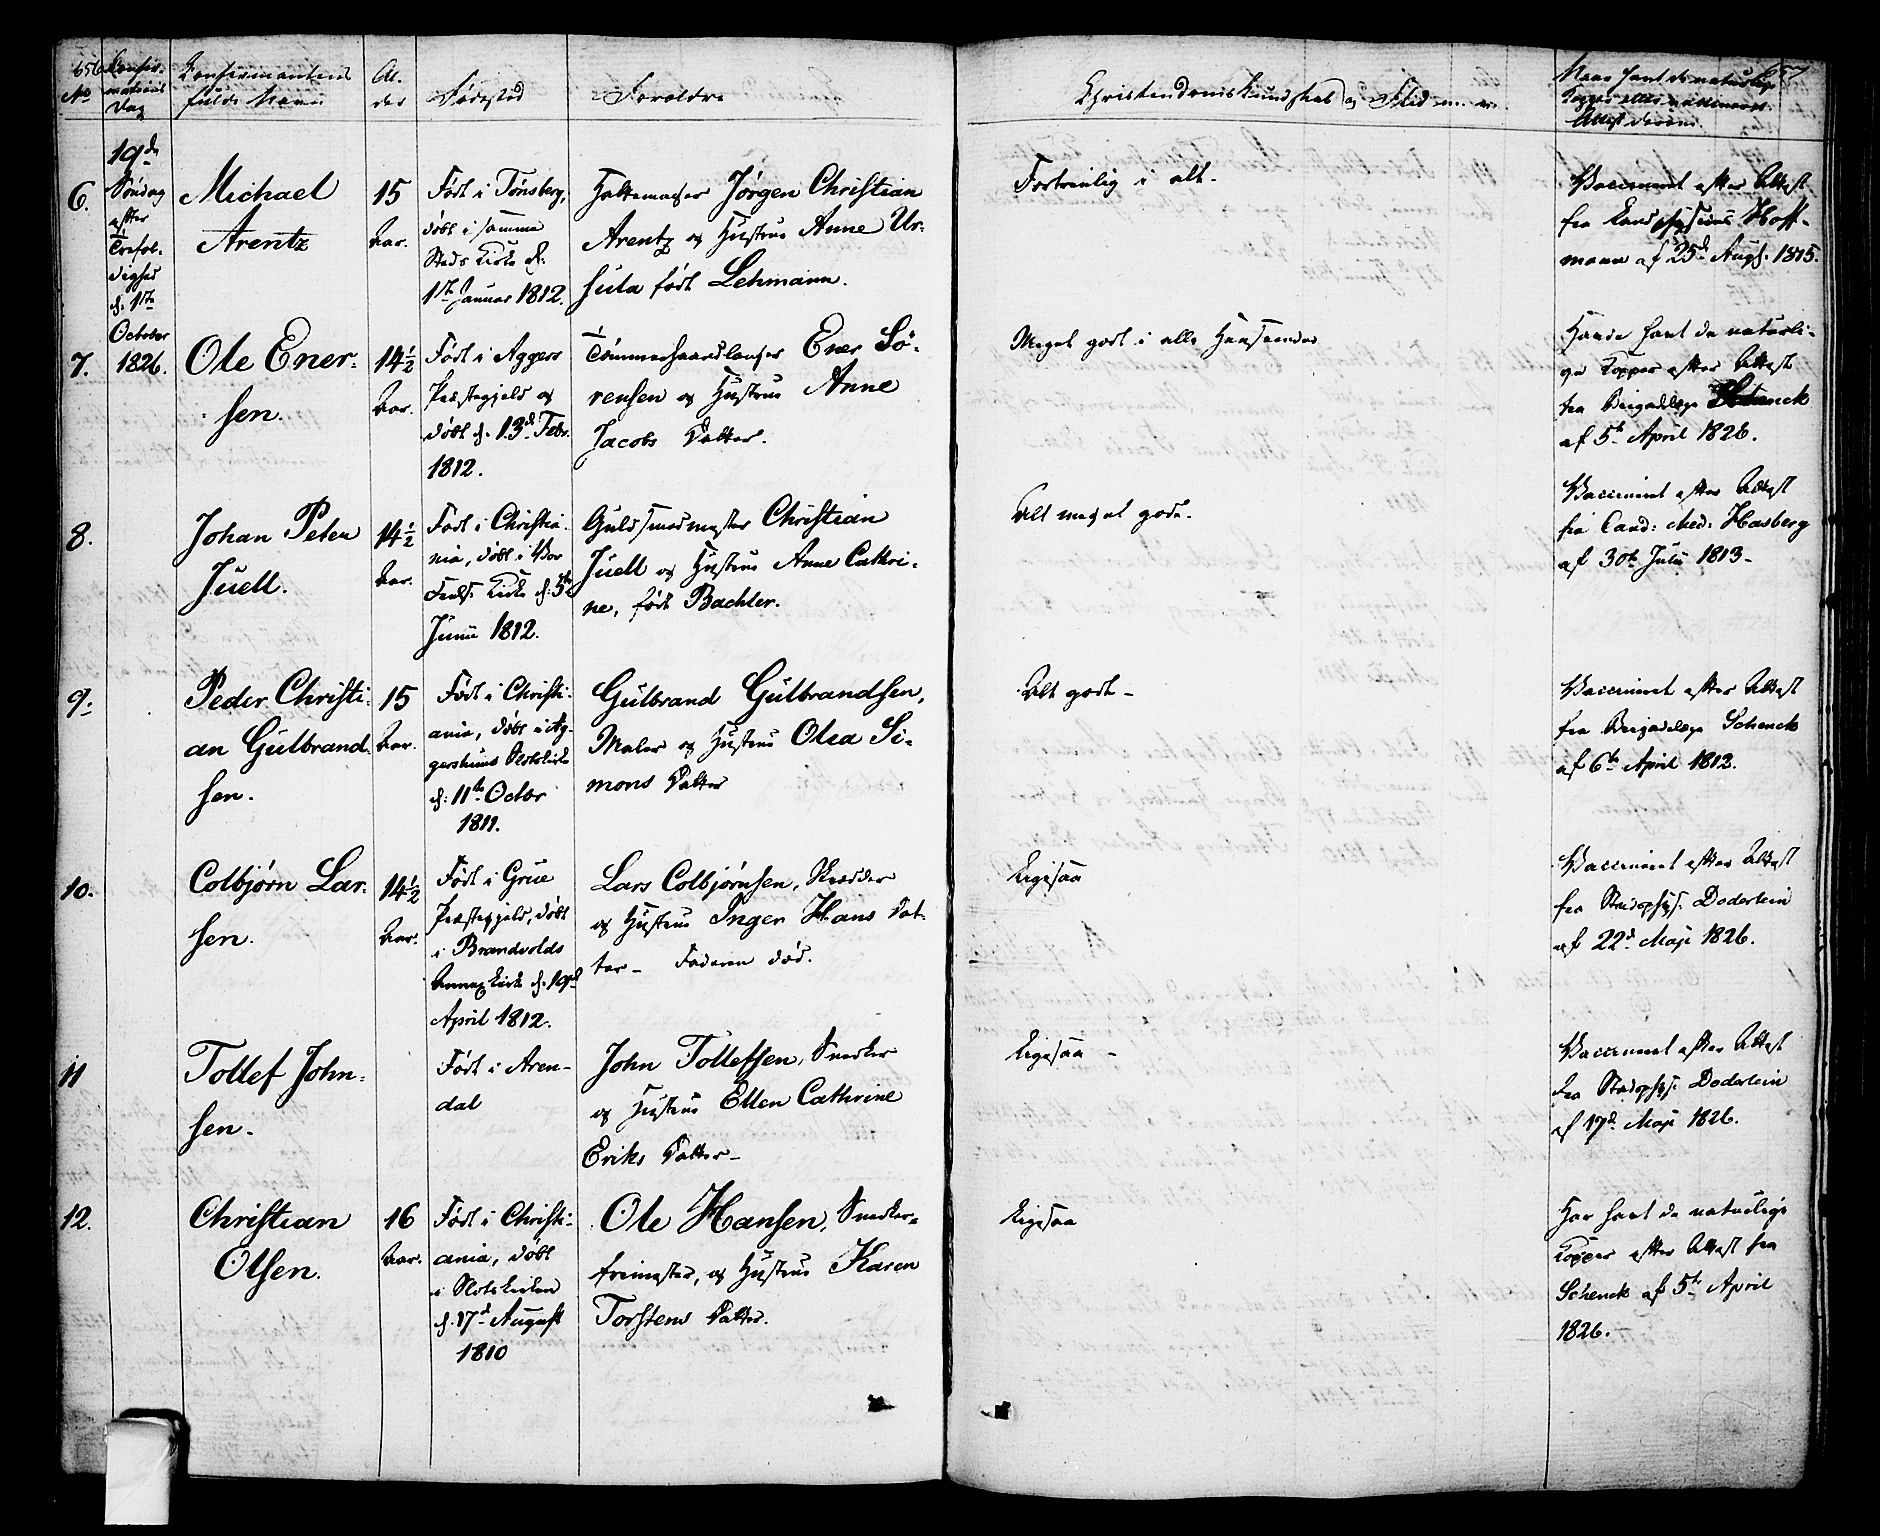 656
No
Confir-
mations
Dag
Confirmantens
fulde Navn
Al-
der
Fødested
Forældre
Christendoms Kundskab og Flid m. v.
657
Naar havt de naturlige
Kopper eller vaccineret.
Attest derom.
19de
Søndag
efter
Trefol-
dighed
d: 1ste
October
1826.
6.
Michael
Arentz
15
Aar.
Født i Tønsberg,
døbt i samme
Steds Kirke d:
1ste Januar 1812.
Jørgen Christian
Arentz og Hustrue Anne Ur-
sula født Lehmann.
Fortrinlig i alt.
Vaccineret efter Attest
fra Landphysicus Hoff-
mann af 25de Aug: 1815.
7.
Ole Ener-
sen.
14½
Aar.
Født i Aggers
Præstegjeld og
døbt d. 13de Febr.
1812.
Ener Sø-
rensen og Hustrue Anne
Jacobs Datter.
Meget godt i alle Henseender
Havde havt de naturli-
ge Kopper efter Attest
fra Brigadelæge Schenck
af 5te April 1826.
8.
Johan Peter
Juell.
14½
Aar.
Født i Christia-
nia, døbt i Vor
Frels: Kirke d: 5te
Junii 1812.
Guldsmedmester Christian
Juell og Hustrue Anne Cathri-
ne, født Bachler.
Alt meget godt.
Vaccineret efter Attest
fra Cand: Med: Hasberg
af 30te Julii 1813.
9.
Peder Christi-
an Gulbrand-
sen.
15
Aar.
Født i Christi-
ania, døbt i Ag-
gershuus Slotskirke
d: 11te Octbr
1811.
Gulbrand Gulbrandsen,
Maler og Hustrue Olea Si-
mons Datter
Alt godt.
Vaccineret efter Attest
fra Brigadelæge Schenck
af 6te April 1812.
10.
Colbjørn Lar-
sen.
14½
Aar.
Født i Grue
Præstegjeld, døbt
i Brandvolds
Annexkirke d. 19de
April 1812.
Lars Colbjørnsen, Skrædder
og Hustrue Inger Hans Dat-
ter. Faderen død.
Ligesaa
Vaccineret efter Attest
fra Stadsphys: Doderlein
af 22de Maji 1826.
11
Tollef John-
sen.
Født i Aren-
dal
John Tollefsen, Snedker
og Hustrue Ellen Cathrine
Eriks Datter.
Ligesaa
Vaccineret efter Attest
fra Stadsphys: Doderlein
af 17de Maji 1826.
12.
Christian
Olsen.
16
Aar.
Født i Christi-
ania, døbt
i Slotskirken
d. 17de August
1810
Ole Hansen, Snedker-
frimester, og Hustrue Karen
Torstens Datter.
Ligesaa
Har havt de naturlige
Kopper efter Attest fra
Schenck af 5te April
1826.